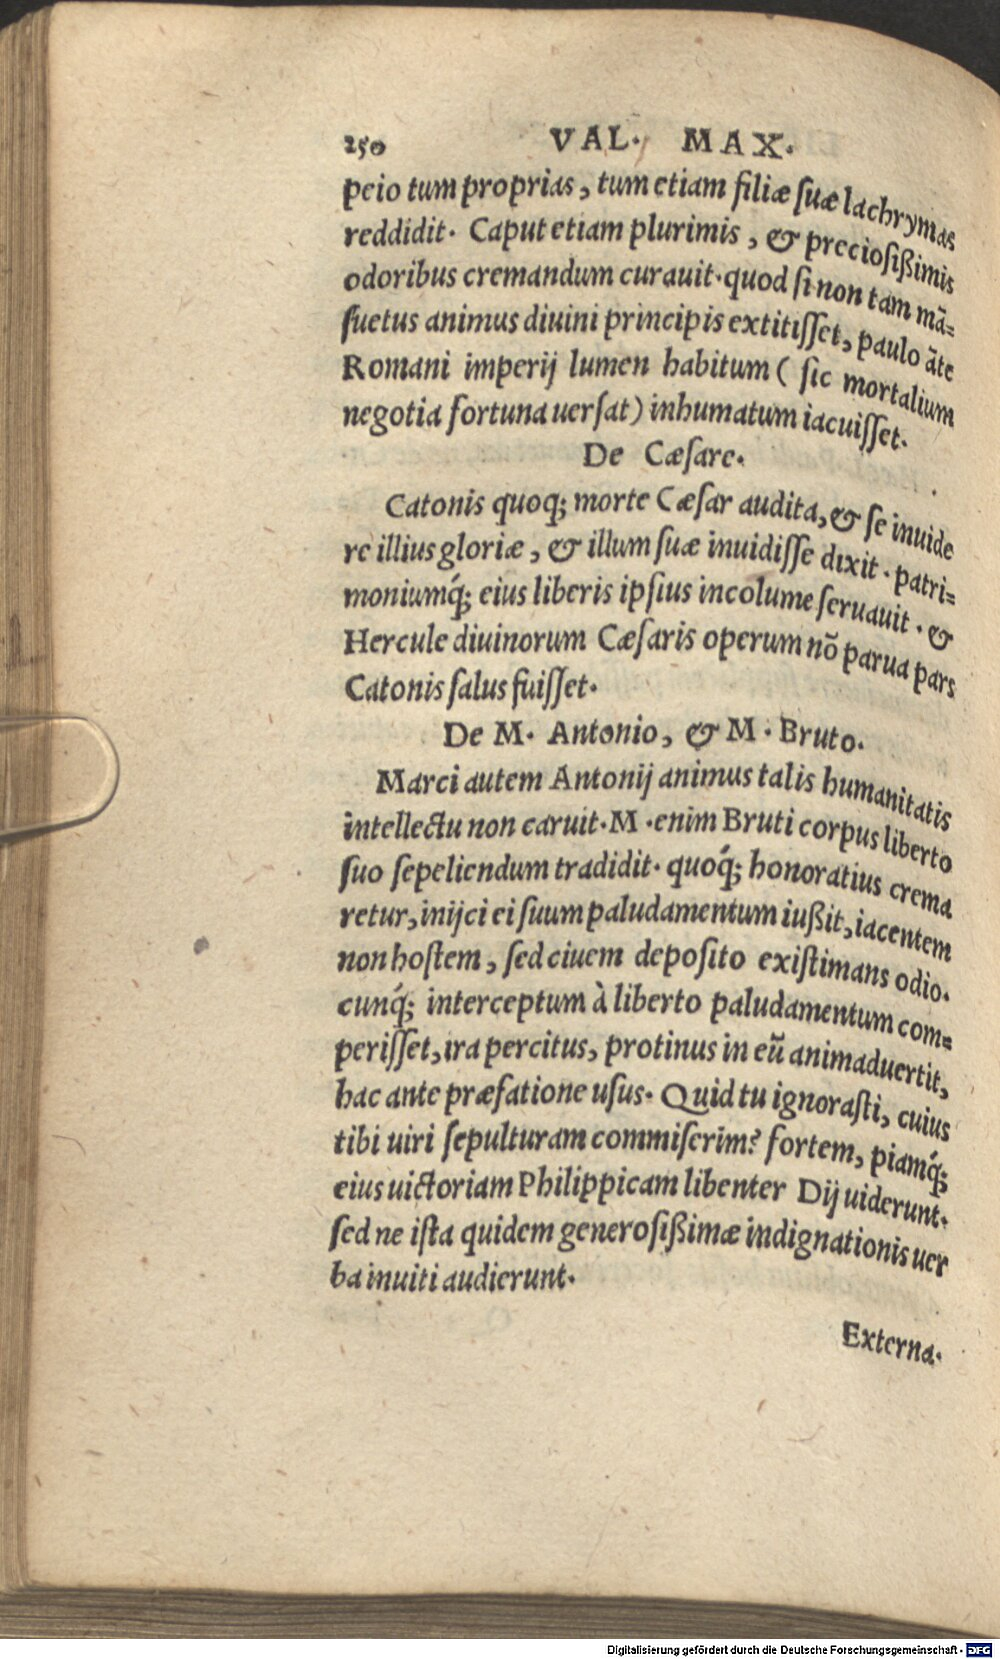 250 VAL. MAX.
peio tum proprias, tum etiam filiæ ſuæ lachrymas
reddidit. Caput etiam plurimis, & precioſißimis
odoribus cremandum curauit. quod ſi non tam mā=
ſuetus animus diuini principis extitiſſet, paulo āte
Romani imperij lumen habitum ( ſic mortalium
negotia fortuna uerſat) inhumatum iacuiſſet.
De Cæſare.
Catonis quoq; morte Cæſar audita, & ſe inuide
re illius gloriæ, & illum ſuæ inuidiſſe dixit. patri=
moniumq́; eius liberis ipſius incolume ſeruauit. &
Hercule diuinorum Cæſaris operum nō parua pars
Catonis ſalus fuiſſet.
De M. Antonio, & M. Bruto.
Marci autem Antonij animus talis humanitatis
intellectu non caruit. M. enim Bruti corpus liberto
ſuo ſepeliendum tradidit. quoq́; honoratius crema
retur, inijci ei ſuum paludamentum iußit, iacentem
non hoſtem, ſed ciuem depoſito exiſtimans odio.
cunq́; interceptum à liberto paludamentum com=
periſſet, ira percitus, protinus in eū animaduertit,
hac ante præfatione uſus. Quid tu ignoraſti, cuius
tibi uiri ſepulturam commiſerim? fortem, piamq́;
eius uictoriam Philippicam libenter Dij uiderunt.
ſed ne iſta quidem generoſißimæ indignationis uer
ba inuiti audierunt.
Externa.
Digitalisierung gefördert durch die Deutsche Forschungsgemeinschaft - DFG